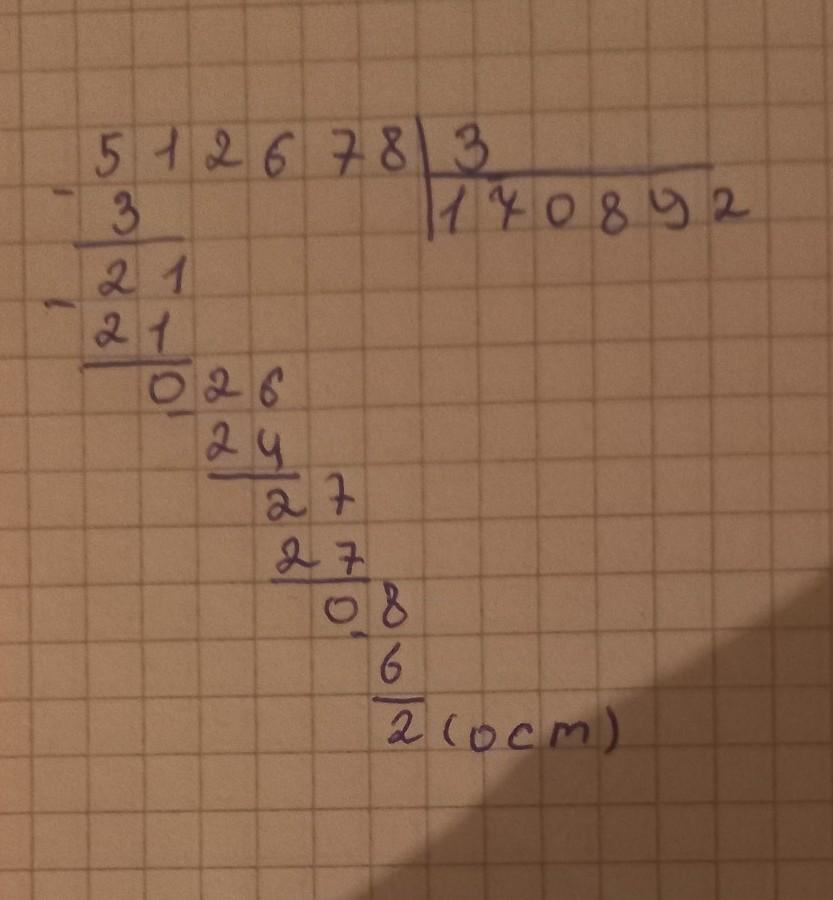 512678 3
- 3 170892
21
- 21
026
- 24
27
27
08
- 6
2 (ост)